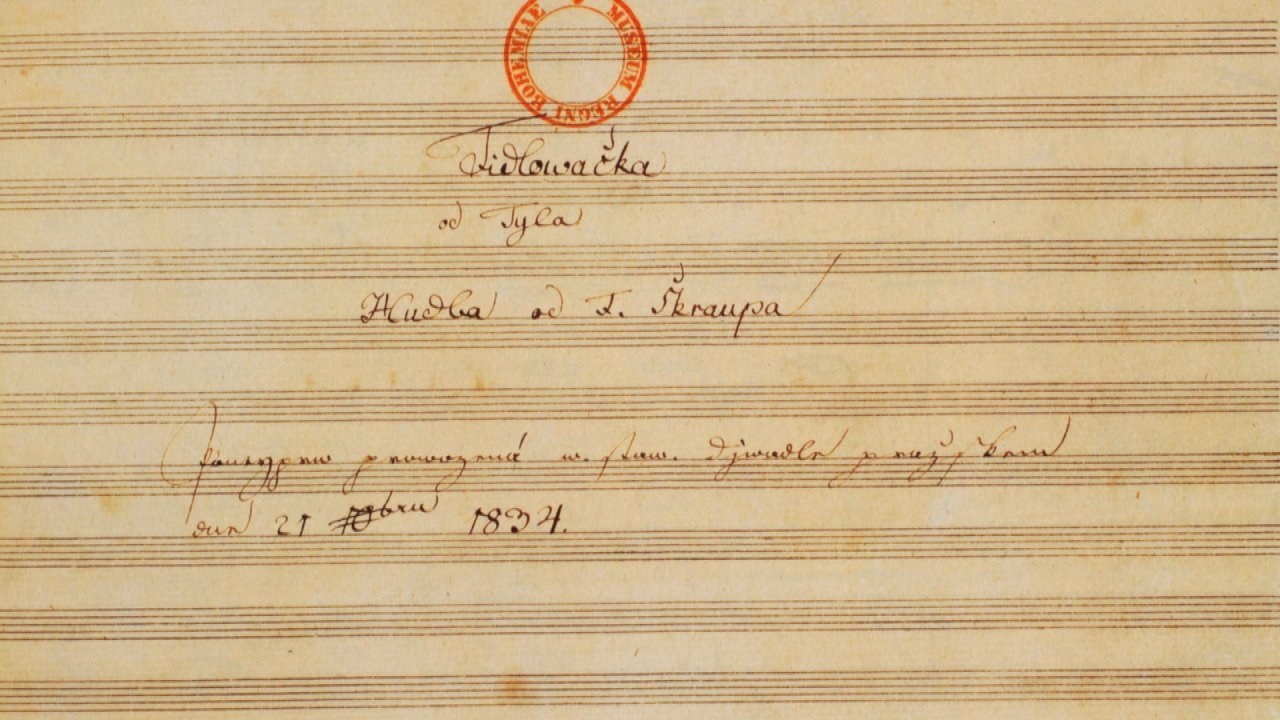 MUSEUM REGNI BOHEMIAE
Fidlowačka
od Tyla
Hudba od F. Škraupa
ponejprw prowozená w. staw. djwadle pražskem
dne 21 10bru 1834.